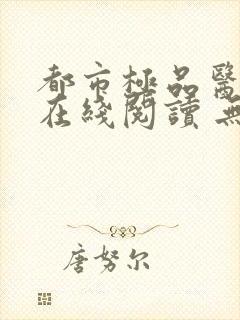 都市極品醫
在綫閱讀 無
唐努尔